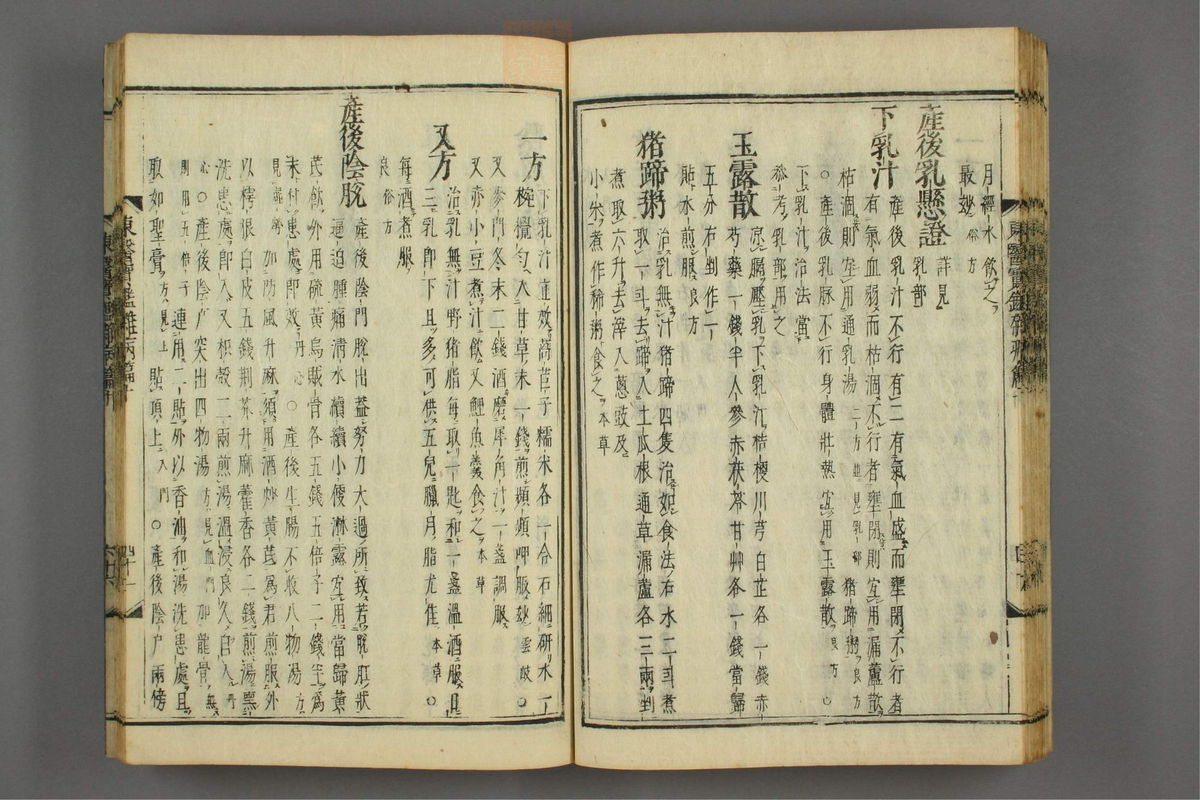 月經水飲之
最玅 俗方
產後乳懸證 詳見乳部
下乳汁 產後乳汁不行有二有氣血盛而壅閉不行者
有氣血弱而枯涸不行者壅閉則宜用漏蘆散
枯涸則宜用通乳湯 二方並見乳部 猪蹄粥 良方
○產後乳脉不行身體壯熱宜用玉露散 良方 ○
下乳汁治法當
叅考乳部用之
玉露散 凉膈壓乳下乳汁桔梗川芎白芷各一錢赤
芍藥一錢半人參赤茯苓甘艸各一錢當歸
五分右剉作一
貼水煎服 良方
猪蹄粥 治乳無汁猪蹄四隻治如食法右水二斗煮
取一斗去蹄入土瓜根通草漏蘆各三兩剉
煮取六升去滓入葱豉及
小米煮作稀粥食之 本草
一方 下乳汁立效萵苣子糯米各一合右細研水一
椀攪勻入甘草末一錢煎頻頻呷服玅 雲岐 ○
又麥門冬末二錢酒磨犀角汁一盞調服
又赤小豆煮汁飲又鯉魚羹食之 本草
又方 治乳無汁野猪脂每取一匙和一盞溫酒服日
三乳卽下且多可供五兒臘月脂尤佳 本草 ○
每酒煮服
良 俗方
產後陰脫 產後陰門脫出盖努力大過所致若脫肛狀
逼迫腫痛淸水續續小便淋露宜用當歸黃
芪飮外用硫黃烏賊骨各五錢五倍子二錢半爲
末付患處卽效 丹心 ○產後生腸不收八物湯 方
見虛勞 加防風升麻須用酒炒黃芪爲君煎服外
以樗根白皮五錢荊芥升麻藿香各二錢煎湯熏
洗患處卽入又枳殼二兩煎湯溫浸良久自入 丹
心 ○產後陰户突出四物湯 方見血門 加龍骨 無
則用五倍子 連用二貼外以香油和湯洗患處且
取如聖膏 方見上 貼頂上 入門 ○產後陰户兩傍
東醫寶鑑雜病篇十
四十一